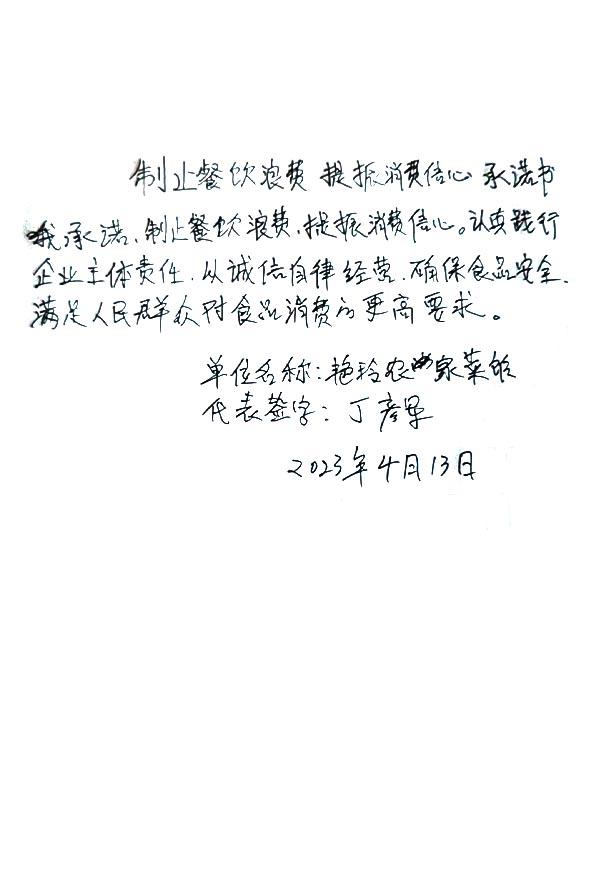 制止餐饮浪费 提振消费信心 承诺书
我承诺、制止餐饮浪费、提振消费信心。认真践行
企业主体责任.从诚信自律经营.确保食品安全.
满足人民群众对食品消费的更高要求。
单位名称:艳玲农家菜馆
代表签字:丁彦
2023年4月13日